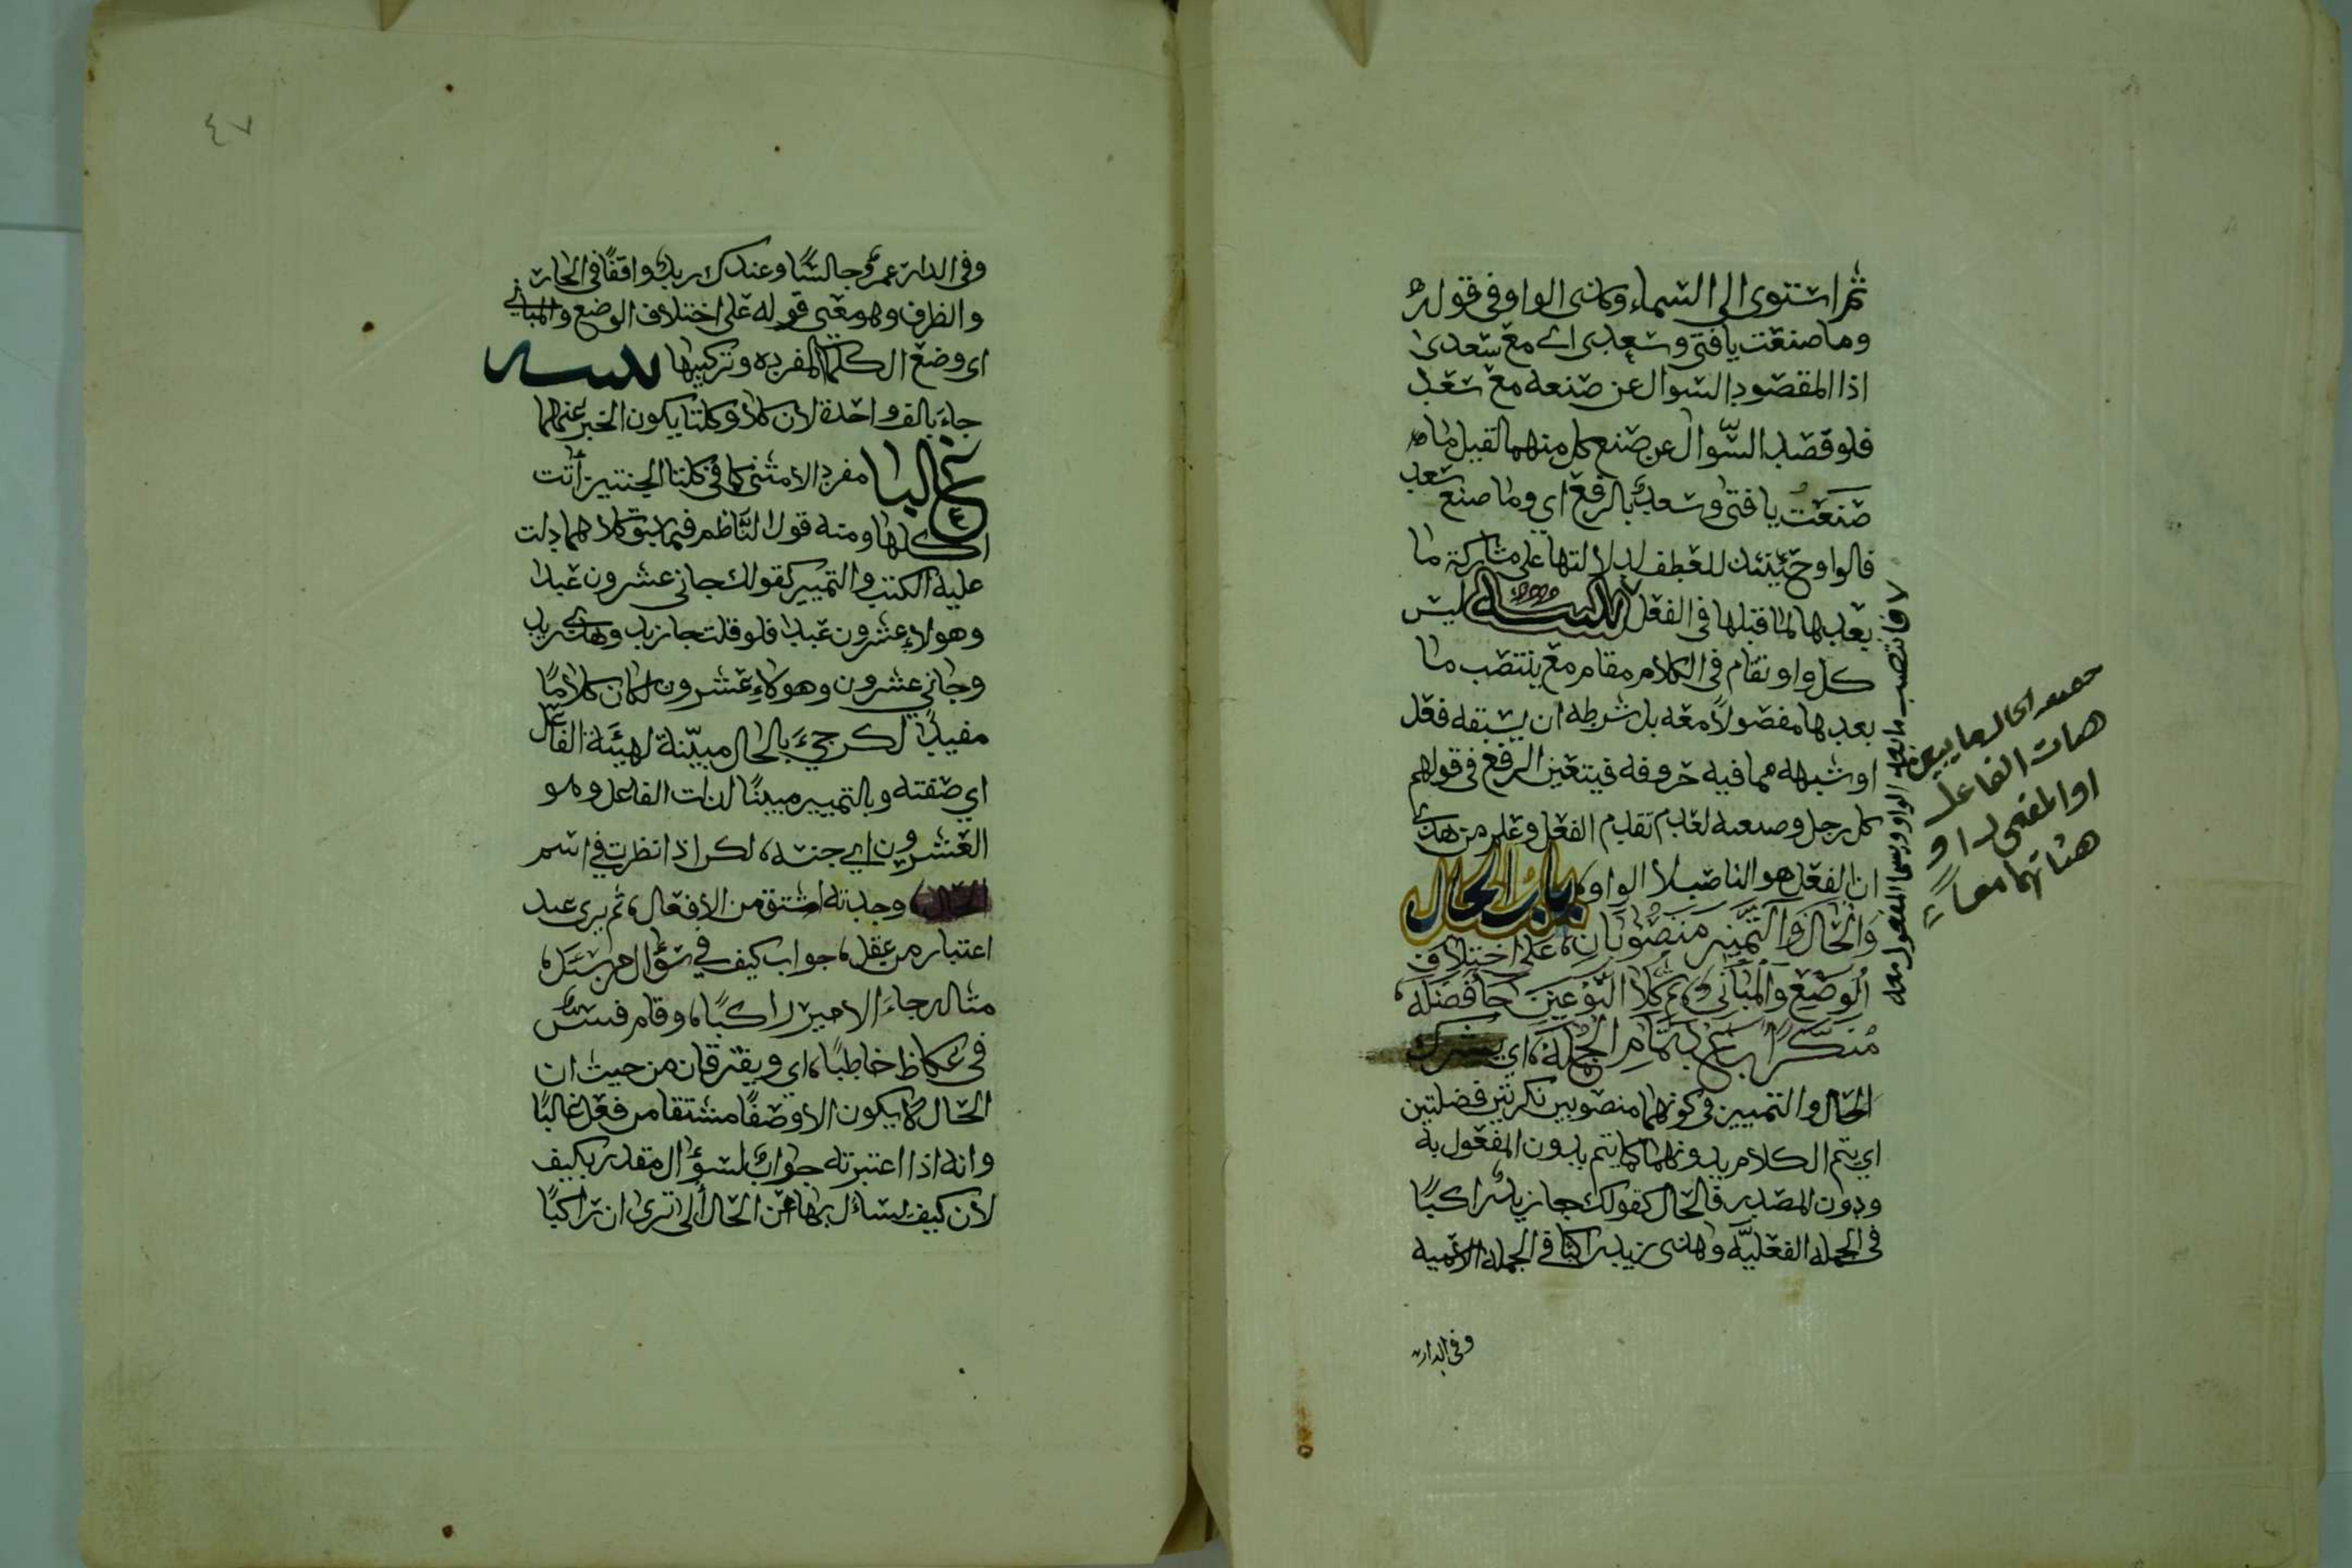 ثم استوى الى السماء وكانت الواو في قوله
وما صنعت يا فتى وسعدى اي مع سعدى
اذا المقصود السوال عن صنعه مع سعد
فلو قصد السوال عن صنع كل منهما لقيل ما
صنعت يا فتى وسعد بالرفع اي وما صنع سعد
فالواو حينئذ للعطف لدلالتها على مشاركة ما
بعدها لما قبلها في الفعل تنبيه ليس
كل واو تقام في الكلام مقام مع ينتصب ما
بعدها مفصولا معه بل شرطه ان يسبقه فعل
او شبهه مما فيه حروفه فيتعين الرفع في قولهم
كل رجل وصنعته لعدم تقديم الفعل وعلم من هذا
ان الفعل هو الناصب لا الواو باب الحال
والحال والتمييز منصوبان على اختلاف
الوضع والمباني ثم كلا النوعين جا فضله
منكرا بعد تمام الجمله اي يشترك
الحال والتمييز في كونهما منصوبين نكرتين فضلتين
اي يتم الكلام بدونهما كما يتم بدون المفعول به
ودون المصدر فالحال كقولك جا زيد راكبا
في الجمله الفعليه وهذا زيد راكبا في الجمله الاسميه
وفي الدار
فانتصب ما بعد الواو ويسمى المفعول معه
الحال ما يبين
هيات الفاعل
او المفعول او
هيئاتهما معا
٤٧
وفي الدار عمرو جالسا وعندك زيد واقفا في الجار
والظرف وهو معنى قوله على اختلاف الوضع والمباني
اي وضع الكلم المفرده وتركيبها تنبيه
جاء بالف واحدة لان كلا وكلتا يكون الخبر عنهما
غالبا مفرد الا مثنى كما في كلتا الجنتين اتت
اكلها ومنه قول الناظم فيما سبق كلاهما دلت
عليه الكتب والتمييز كقولك جاني عشرون عبدا
وهولاء عشرون عبدا فلو قلت جا زيد وهذا زيد
وجاني عشرون وهولاء عشرون لكان كلاما
مفيدا لكن جيء بالحال مبينة لهيئة الفاعل
اي صفته وبالتمييز مبينا لذات الفاعل وهو
العشرون اي جنسه لكن اذا نظرت في اسم
الحال وجدته اشتق من الافعال ثم يرى عند
اعتبار من عقل جواب كيف في سؤال من سئل
مثاله جاء الامير راكبا وقام قس
في عكاظ خاطبا اي ويفترقان من حيث ان
الحال لا يكون الا وصفا مشتقا من فعل غالبا
وانه اذا اعتبرته جواب لسؤال مقدر بكيف
لان كيف يسائل بها عن الحال الا ترى ان راكبا